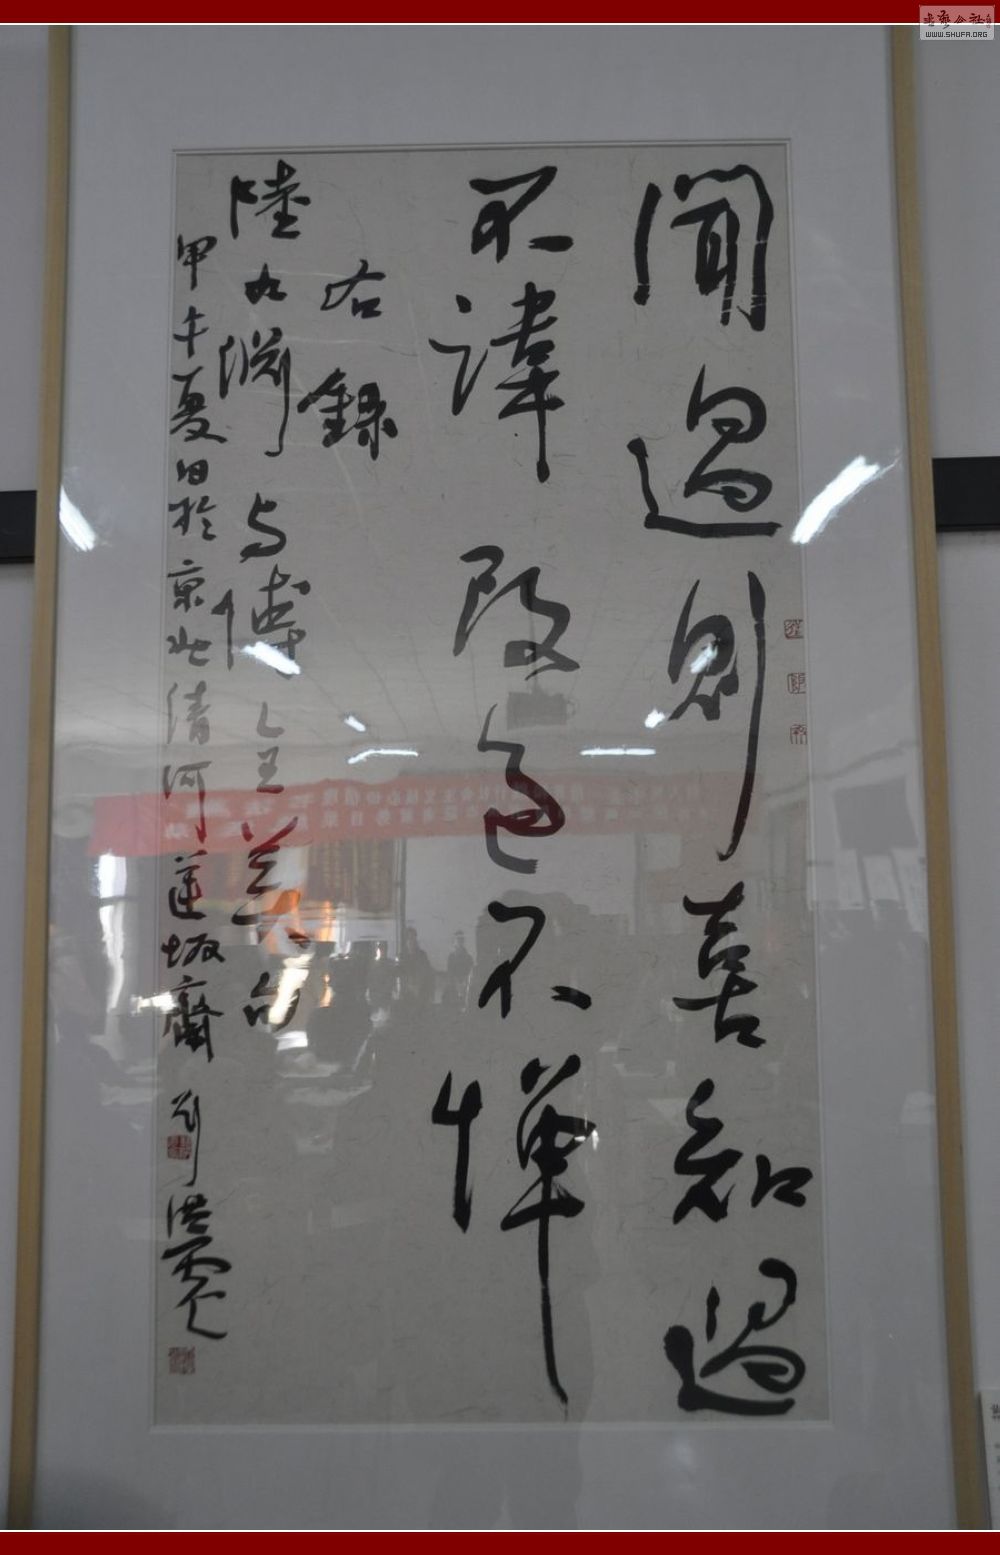 聞過則喜知過
不諱改過不憚
右錄
陸九渊与傅全美句
甲午夏日於京北清河蓮坂齋 劉洪
書藝公社
WWW.SHUFA.ORG